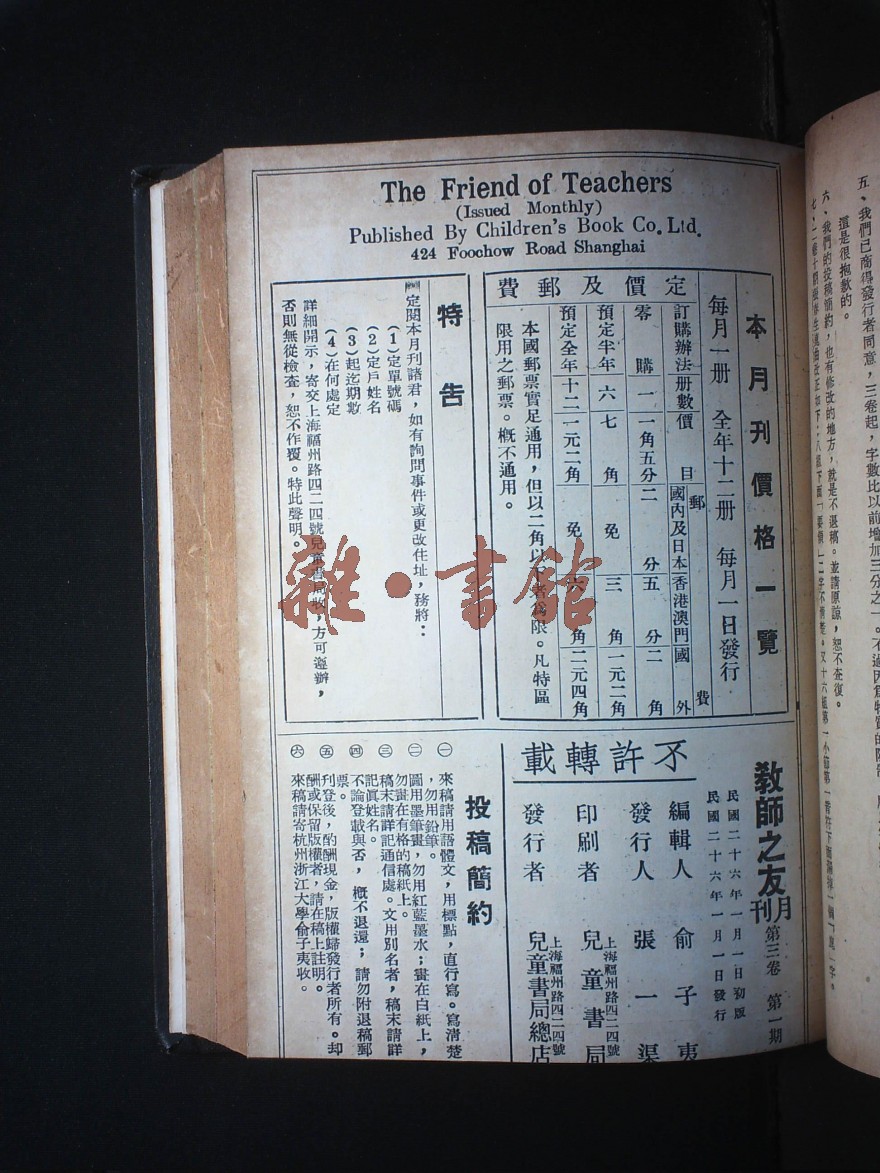 The Friend of Teachers
(Issued Monthly)
Published By Children's Book Co. Ltd.
424 Foochow Road Shanghai
本月刊價格一覽
每月一册 全年十二册 每月一日發行
定價及郵費
訂購辦法 册數 價目 郵費 國內及日本 香港澳門 國外
零購 一 一角五分 二分 五分 二角
預定半年 六 七角 免 三角 一元二角
預定全年 十二 一元二角 免 六角 二元四角
本國郵票實足通用，但以二角以下者爲限。凡特區
限用之郵票。概不通用。
特告
定閱本月刊諸君，如有詢問事件或更改住址，務將：
(1)定單號碼
(2)定戶姓名
(3)起迄期數
(4)在何處定
詳細開示，寄交上海福州路四二四號兒童書局收，方可遵辦，
否則無從檢查，恕不作覆。特此聲明。
雜·書館
教師之友月刊 第三卷 第一期
民國二十六年一月一日初版
民國二十六年一月一日發行
不許轉載
編輯人 俞子夷
發行人 張一渠
印刷者 上海福州路四二四號 兒童書局
發行者 上海福州路四二四號 兒童書局總店
投稿簡約
㊀ 來稿請用語體文，用標點，直行寫。寫清楚
，勿用鉛筆。
㊁ 圖用墨筆畫，勿用紅藍墨水；畫在白紙上，
勿畫在有格的稿紙上。
㊂ 稿末請詳記通信處。文用別名者，稿末請詳
記眞姓名。
㊃ 不論登載與否，概不退還；請勿附退稿郵
票。
㊄ 刊登後，酌酬現金，版權歸發行者所有。却
酬或保留版權者，請在稿上註明。
㊅ 來稿請寄杭州浙江大學俞子夷收。
五、我們已商得發行者同意，三卷起，字數比以前增加三分之一。不過因爲物質的限制
這是很抱歉的。
六、我們的投稿簡約，也有修改的地方，就是不退稿。並請原諒，恕不查復。